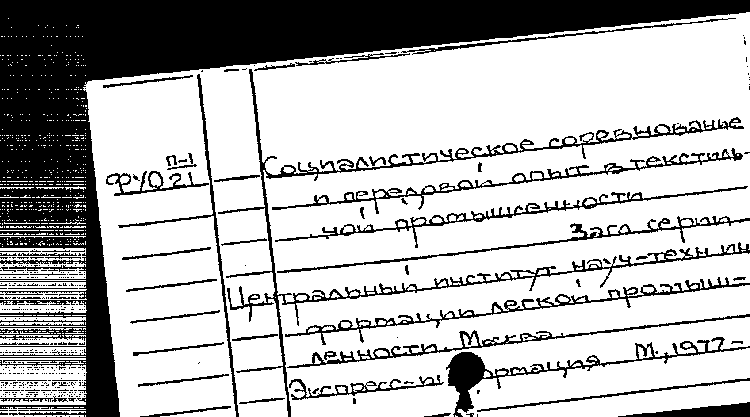 Социалистическое соревнованье
П-1
ФУО 21
и передовой опыт в текстиль-
ной промышленности
Загл. серии
Центральный институт науч-техн ин
формации легкой промыш-
ленности. Москва.
Экспресс-информация. М., 1977-